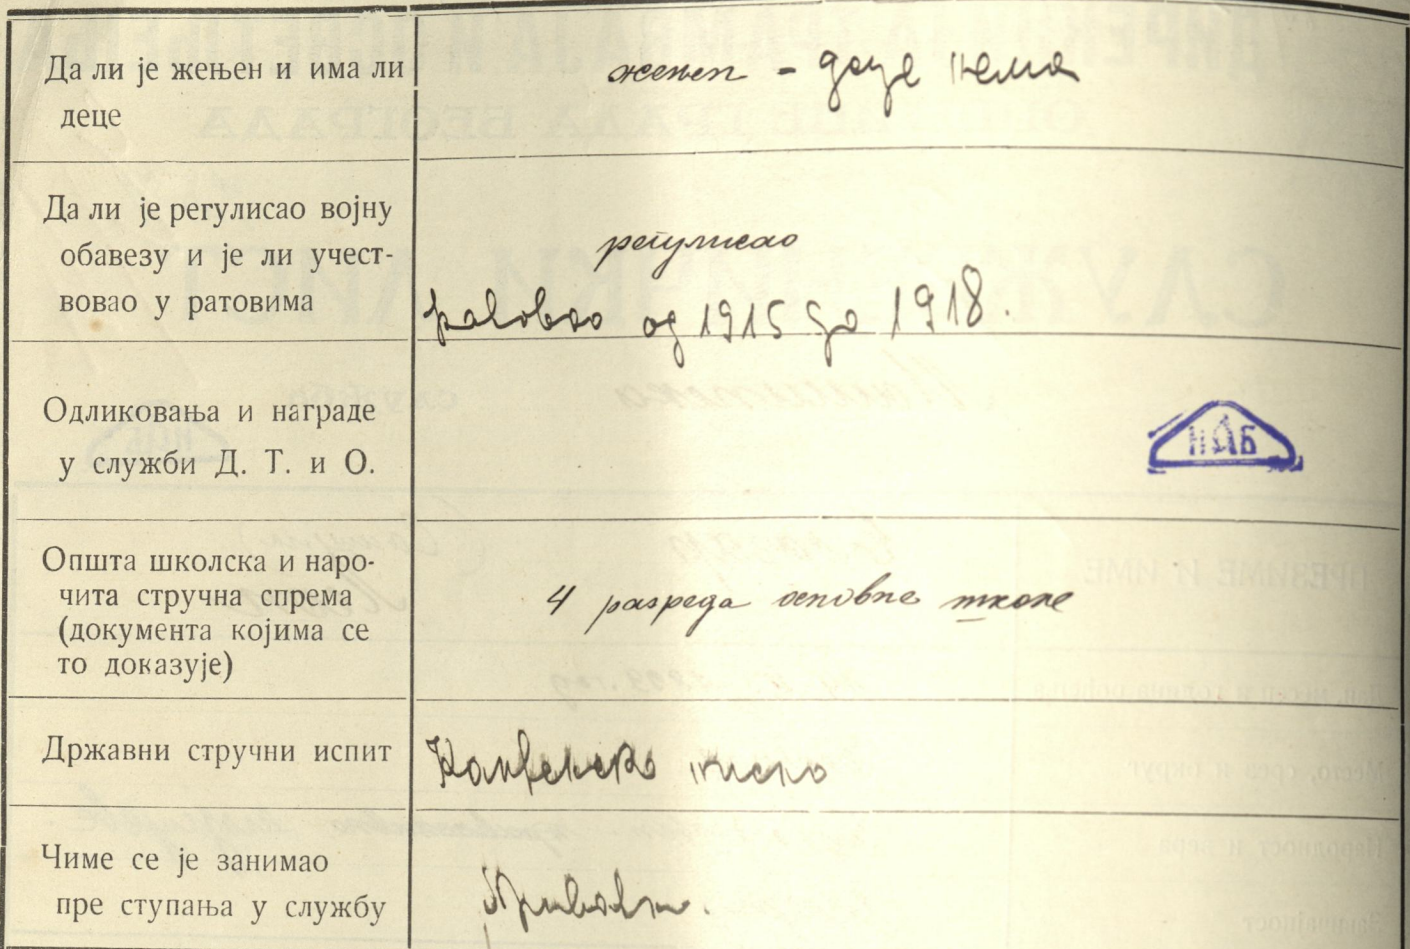 Да ли је жењен и има ли
деце
жењен - деце нема
Да ли је регулисао војну
обавезу и је ли учест-
вовао у ратовима
регулисао
ратовао од 1915 до 1918.
Одликовања и награде
у служби Д. Т. и О.
НАБ
Општа школска и наро-
чита стручна спрема
(документа којима се
то доказује)
4 разреда основне школе
Државни стручни испит
писмо
Чиме се је занимао
пре ступања у службу